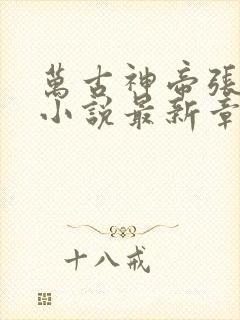 萬古神帝張
小說最新章
十八戒